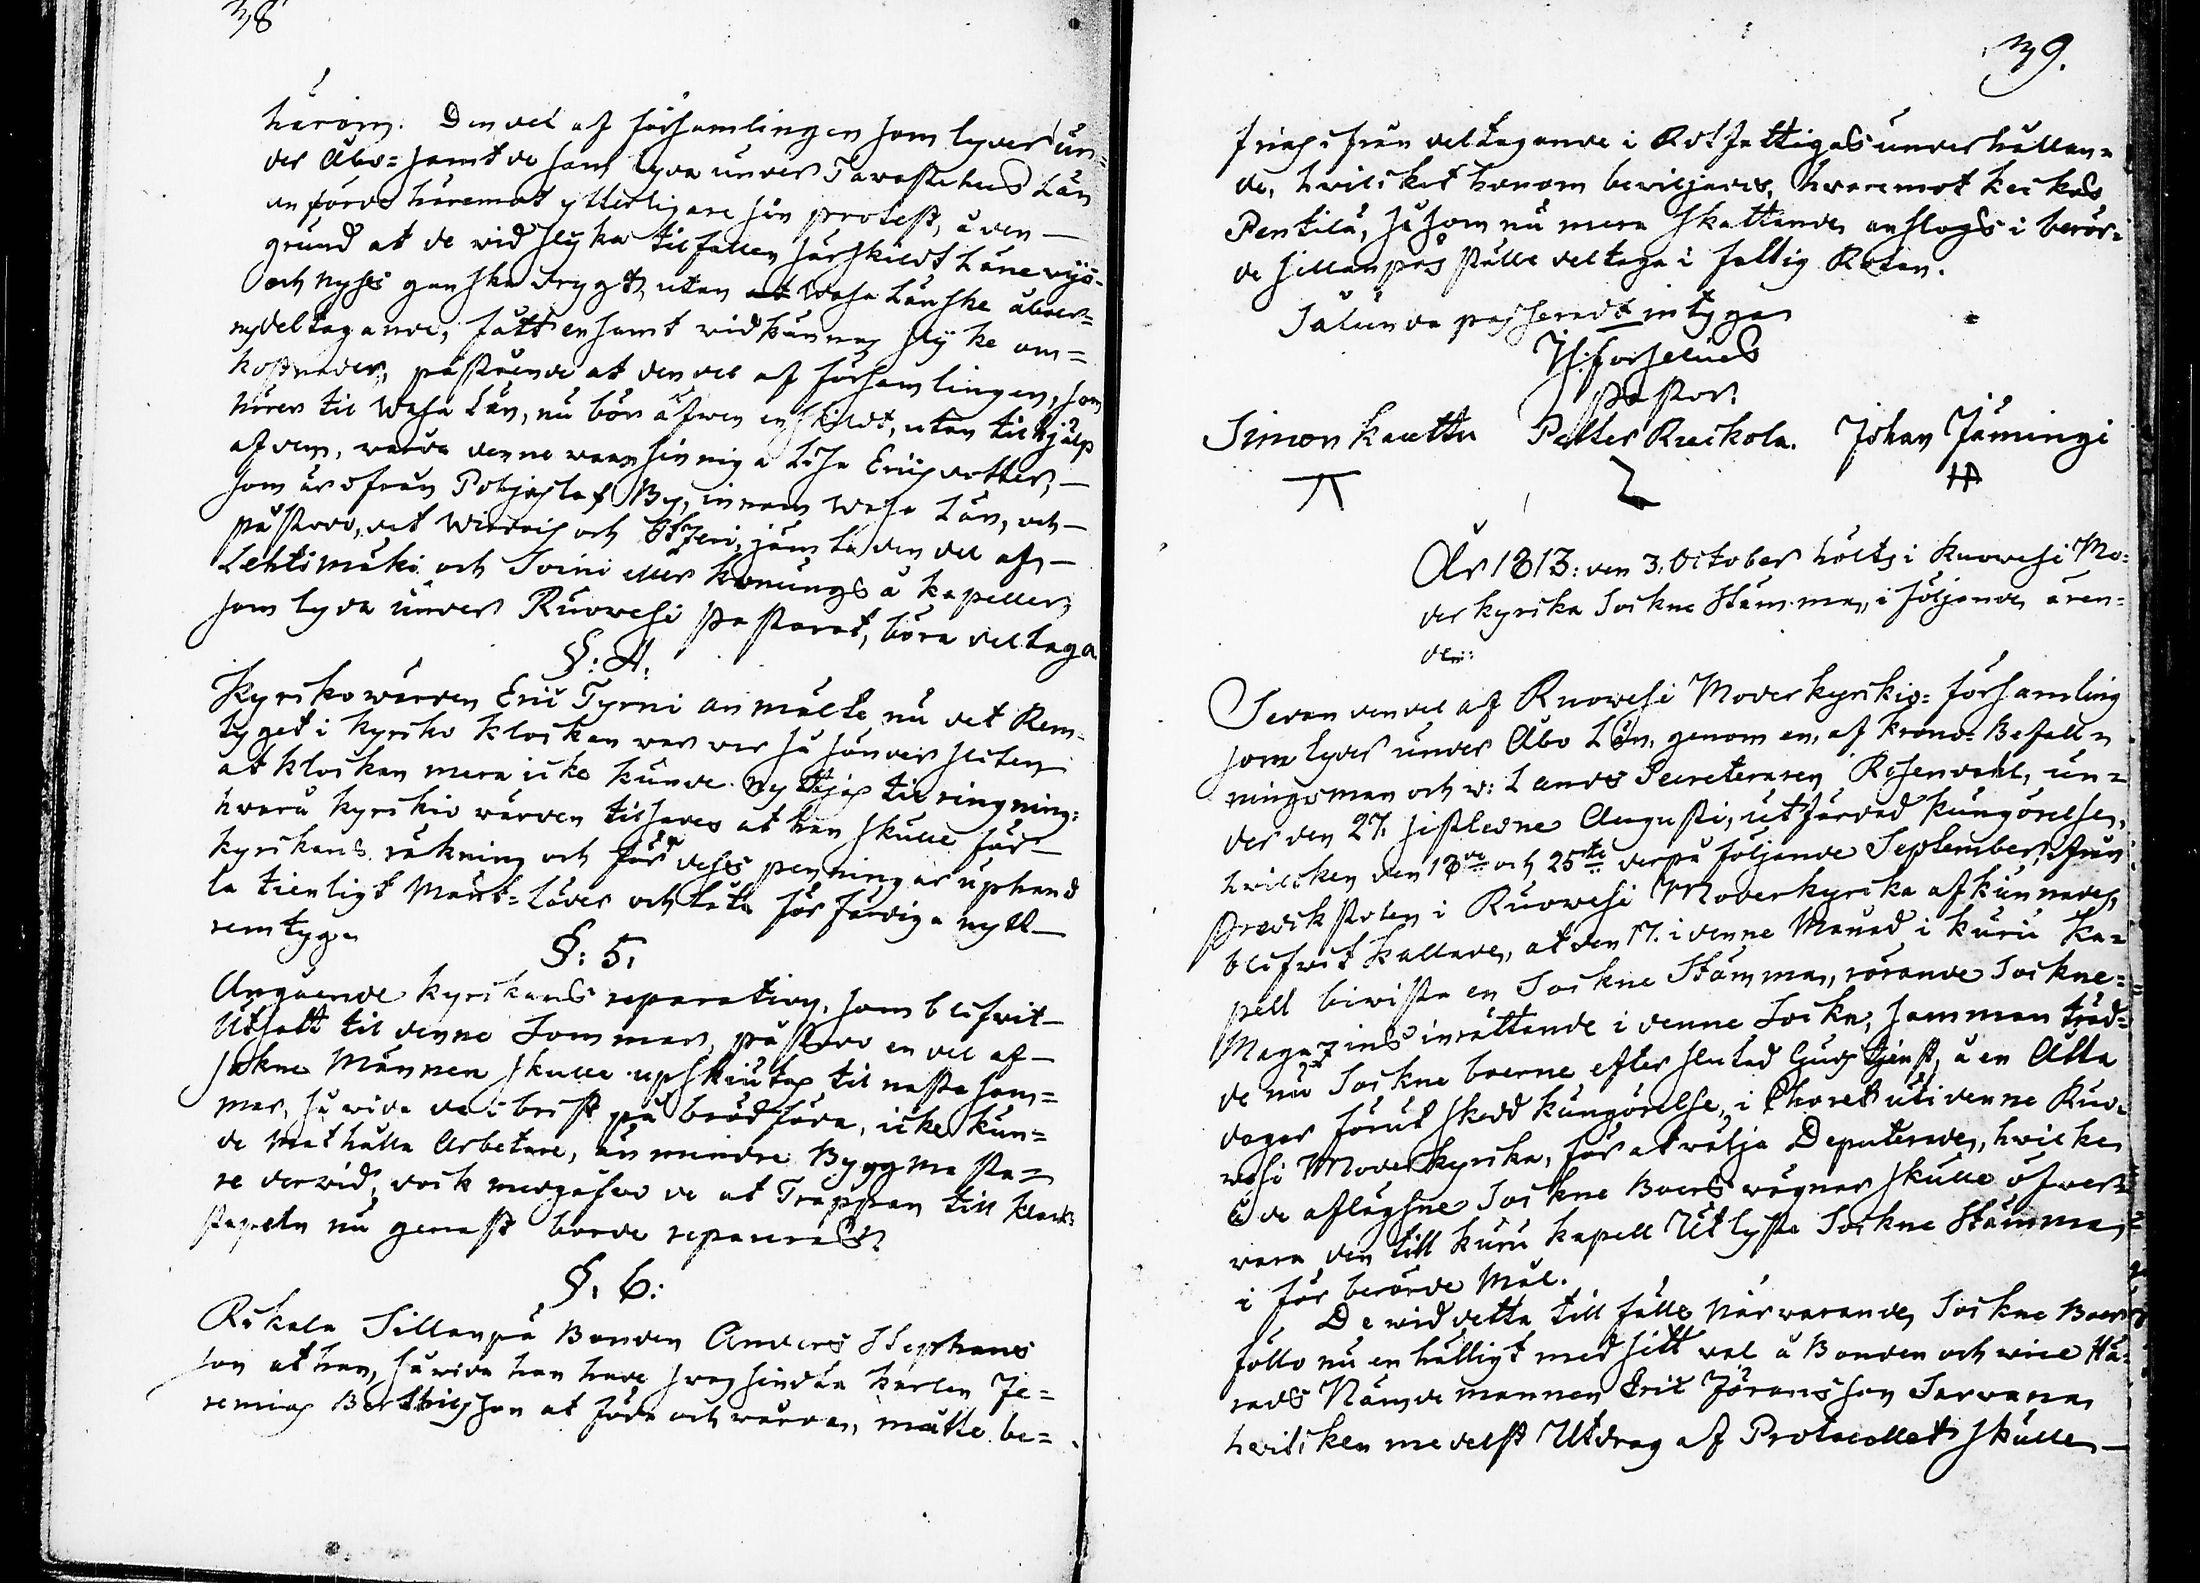 38
härom. Den del af församlingen som lyder un-
der Åbo= samt de som lyda under Tawastehus Län
anförde häremot ytterligare sin protest, å den
grund at de wid slyka tilfällen särskildt Länewijs-
och nyses ganska drygt, utan Wasa Länske åboer-
nes deltagande, fått ensamt widkännas slyke om=
kostnader, påstående at den del af församlingen, som
hörer til Wasa Län, nu bör äfwen enskildt, utan tilhjälp
af dem, wårda denne wansinniga Lisa Ericsdotter,
som är ifrån Pohjaslax By, innom Wasa Län, och
påstodo, det Wirdois och Etzeri, jämte den del af
Lehtimäki och Soini eller Konungså kapeller,
som lyda under Ruowesi Pastorat, böra deltaga
§: 4.
Kyrkowärden Eric Tyrni anmälte nu det Rem-
tyget i kyrko klockan war så sönder sliten
at klockan mera icke kunde nyttjas til ringning:
hwarå kyrkio wärden tilsades at han skulle för
kyrkans räkning och för dess penningar uphand
la tienligt Mört=Läder och låta förfärdiga nytt
remtyg
§: 5.
Angående kyrkans reparation, som blifwit
Utsatt til denne Sommar, påstodo en del af
Sokne Männen skulle upskiutas til nästa som=
mar, så wida de i brist på brödföda, icke kun=
de Mathålla Arbetare, än mindre Byggmästa=
re derwid, dock medgåfwo de at Trappan till klock
stapeln nu genast borde repareras.
§. 6:
Rikala Sillanpä Bonden Anders Stephans
son at han, så wida han hade swagsindta karlen Je=
remias Berthilsson at föda och wårda, måtte be=
39.
frias ifrån deltagande i Rotfattigas underhållan=
de, hwilcket honom bewiljades, hwaremot
Pentilä, såsom nu mera skattande anslogs i berör=
de Sillanpäs ställe deltaga i fattig Roten.
Sålunda passeradt intygar
H: Forselius
Pastor.
Simon Kauttu Petter Ruokola. Johan Jäminge
Åhr 1813: den 3. October hölts i Ruowesi Mo=
derkyrka Sockne Stämma, i följande ären=
den:
Sedan den del af Ruowesi Moderkyrkio= församling
som lyder under Åbo Län, genom en, af Krono= Befall=
ningsman och v: Lands Secreteraren Rosendahl, un=
der den 27. sistledne Augusti, utfärdad kungörelse,
hwilcken den 18de och 25te derpå följande September, ifrån
Predikstolen i Ruowesi Moderkyrka afkunnades,
blifwit kallade, at den 17. i denne Månad i Kuru Ka=
pell biwista en Sockne Stämma, rörande Sockne=
Magazins inrättande i denne Sockn, sammanträd=
de nu Sockne boerne efter slutad Gudstjenst, å en Åtta
dagar förut skedd kungörelse, i Choret uti denne Ruo=
wesi Moderkyrka, för at wälja Deputerade, hwilke
å de aflägsne Sockne Boers wägnar skulle öfwer=
wara den till Kuru kapell Utlyste Sockne Stämma,
i för berörde Mål.
De wid detta till fälle Närwarande Sockne Boer
föllo nu enhälligt med sitt wal å Bonden och wice Hä=
rads Nämndemannen Eric Jöransson Sarwana
hwilcken medelst Utdrag af Protocollet skulle